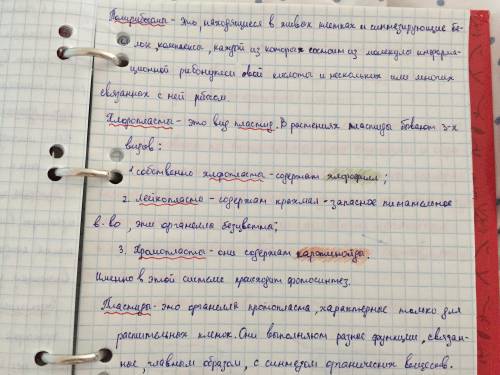 Полирибосомы - это, находящиеся в живых клетках и синтезирующие бе-
лок комплексы, каждый из которых состоит из молекулы информа-
ционной рибонуклеиновой кислоты и нескольких или многих
связанных с ней рибосом.
Хлоропласты - это вид пластид. В растениях пластиды бывают 3-х
видов:
1. собственно хлоропласты - содержат хлорофилл;
2. Лейкопласты - содержат крахмал - запасное питательное
в-во, эти органеллы бесцветны;
3. Хромопласты - они содержат каротиноиды.
Именно в этой системе происходит фотосинтез.
Пластиды - это органеллы протопласта, характерные только для
растительных клеток. Они выполняют разные функции, связан-
ные, главным образом, с синтезом органических веществ.